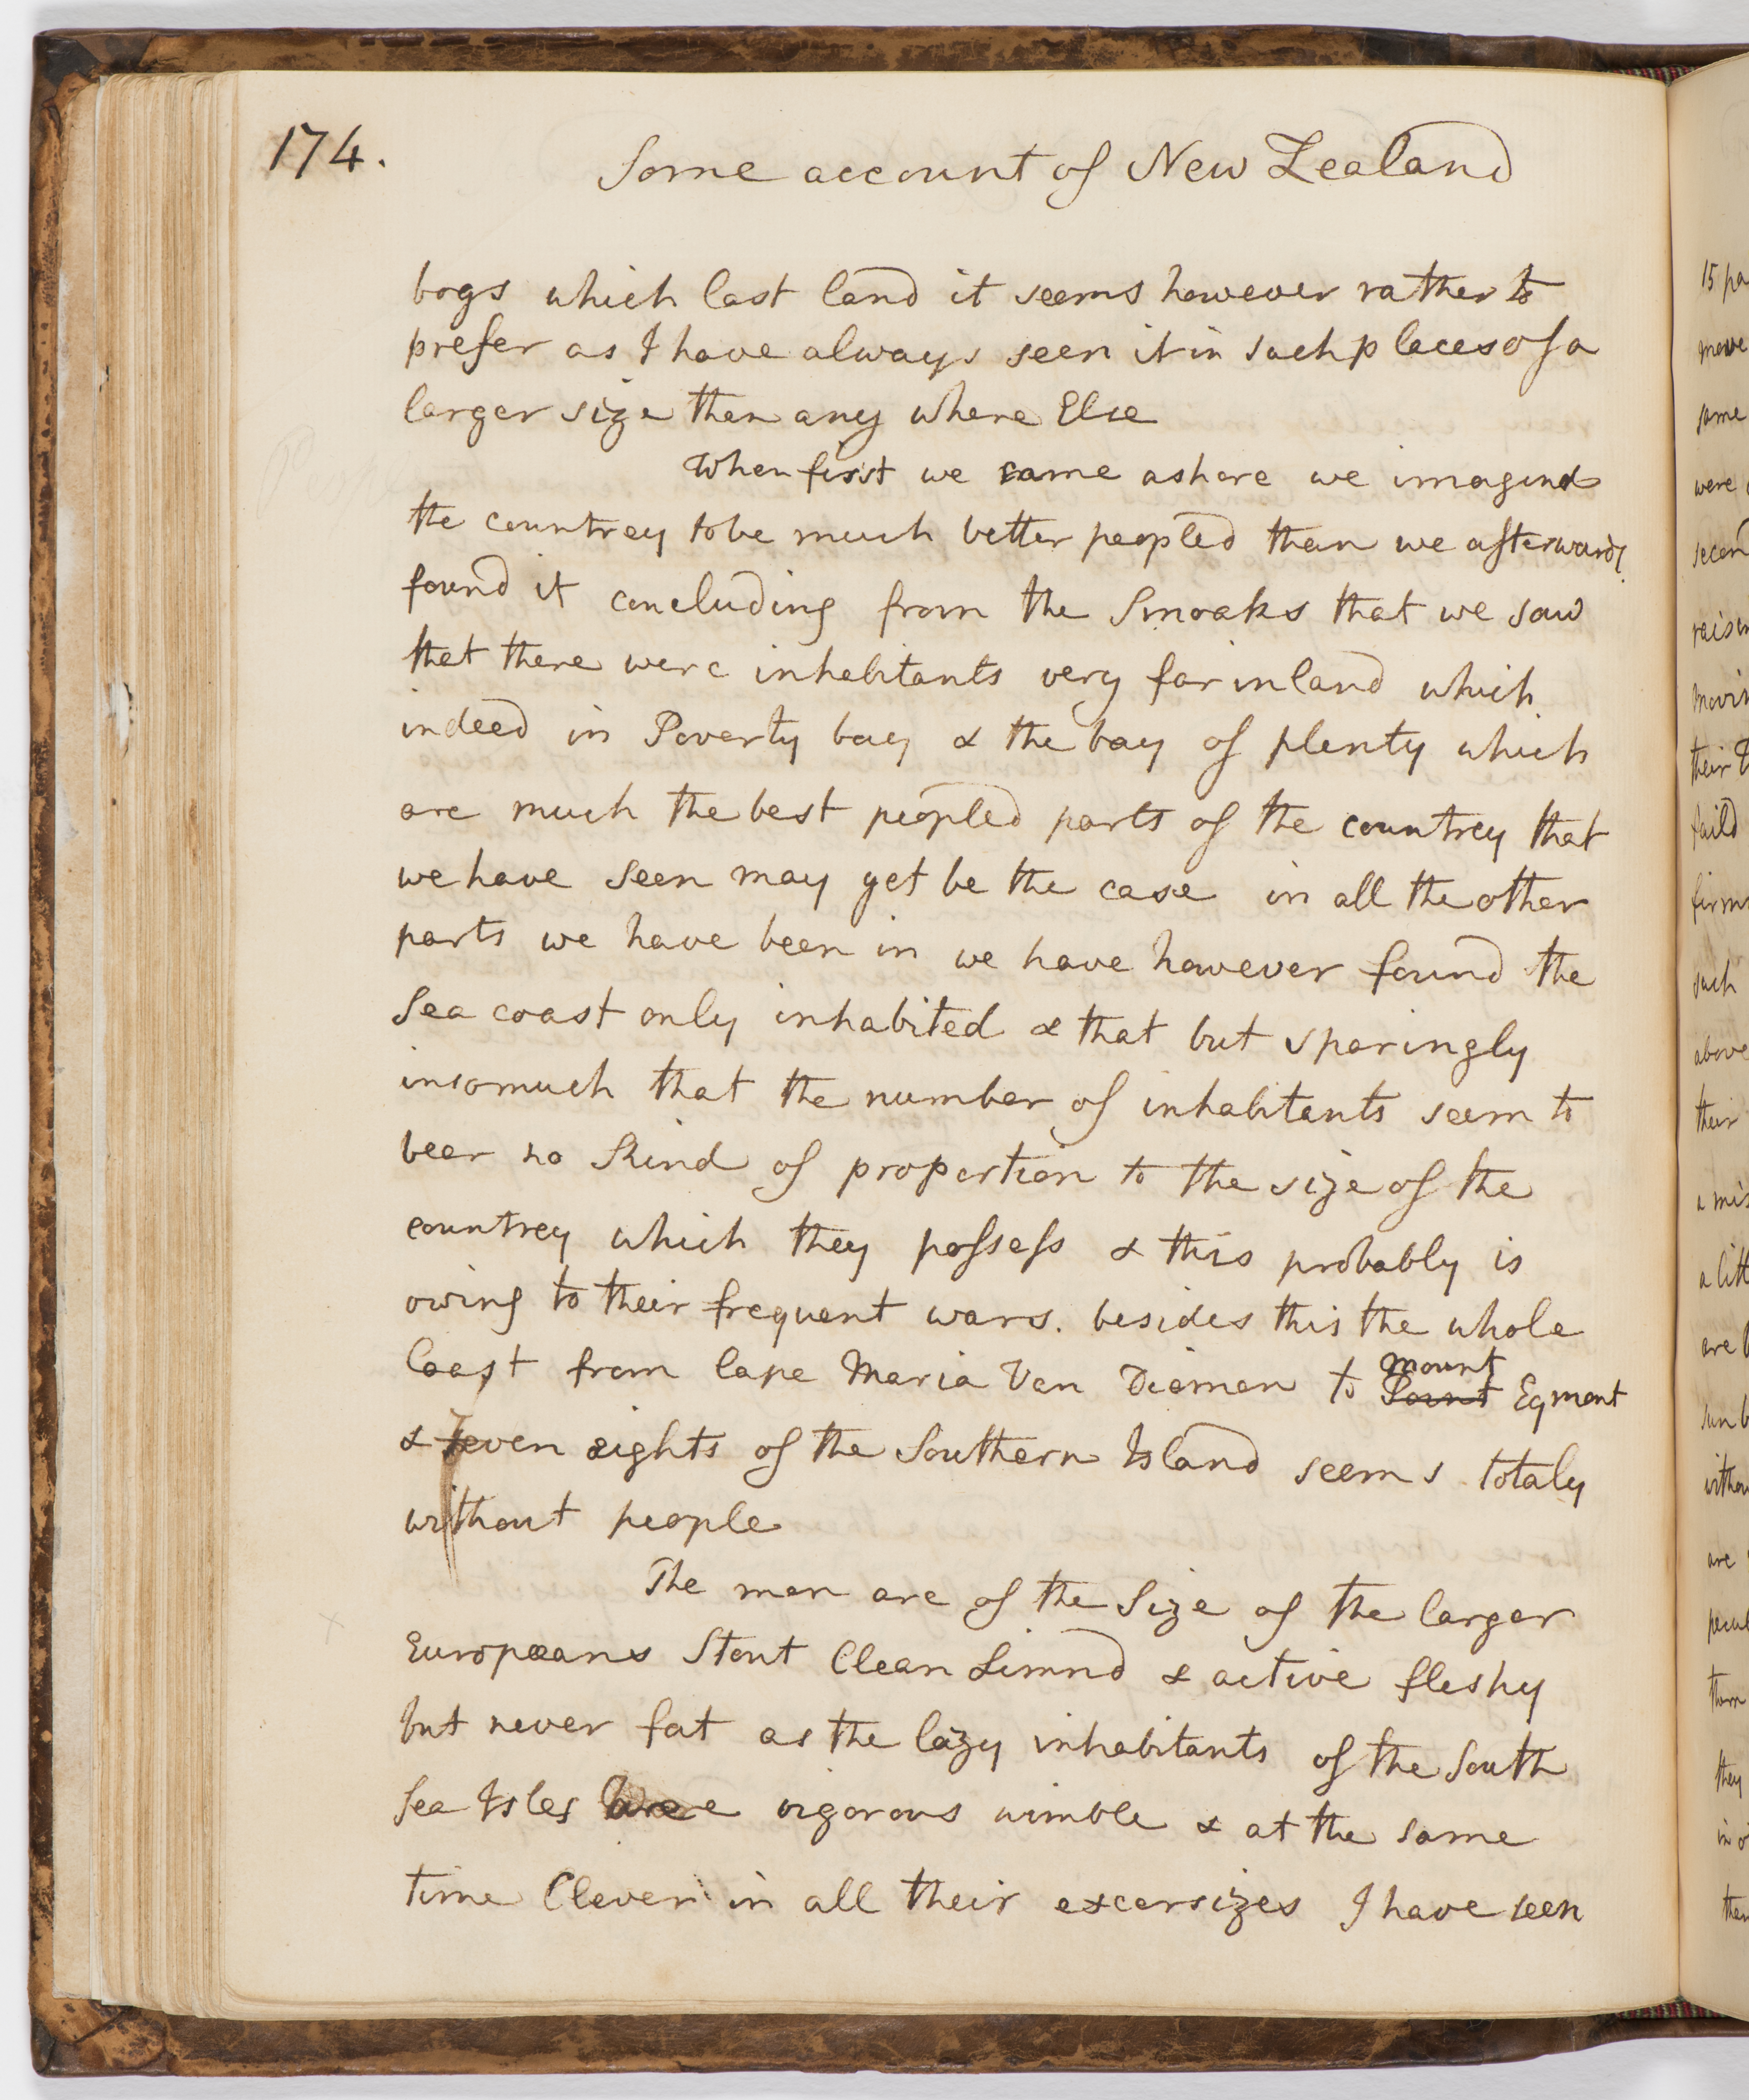 174.
Some account of New Zealand
bogs which last land it seems however rather to
prefer as I have always seen it in such places of a
larger size than any where Else
When first we came ashore we imagind
the countrey to be much better peopled than we afterwards
found it concluding from the Smoaks that we saw
that there were inhabitants very far inland which
indeed in Poverty bay & the bay of plenty which
are much the best peopled parts of the countrey that
we have seen may yet be the case in all the other
parts we have been in we have however found the
Sea coast only inhabited & that but sparingly
insomuch that the number of inhabitants seem to
bear no Kind of proportion to the size of the
countrey which they possess & this probably is
owing to their frequent wars. besides this the whole
Coast from Cape Maria Van Diemen to Point mount Egmont
& Seven eights of the Southern Island seems totaly
without people
The men are of the Size of the larger
Europæans Stout Clean Limnd & active fleshy
but never fat as the lazy inhabitants of the South
Sea Isles are vigorous nimble & at the same
time Clever in all their excersizes I have seen
15 pa
move
same
were
secon
raisin
movin
their
faild
firm
such
above
their
a mis
a litt
are
sun b
witho
are
pecul
them
they
in o
then